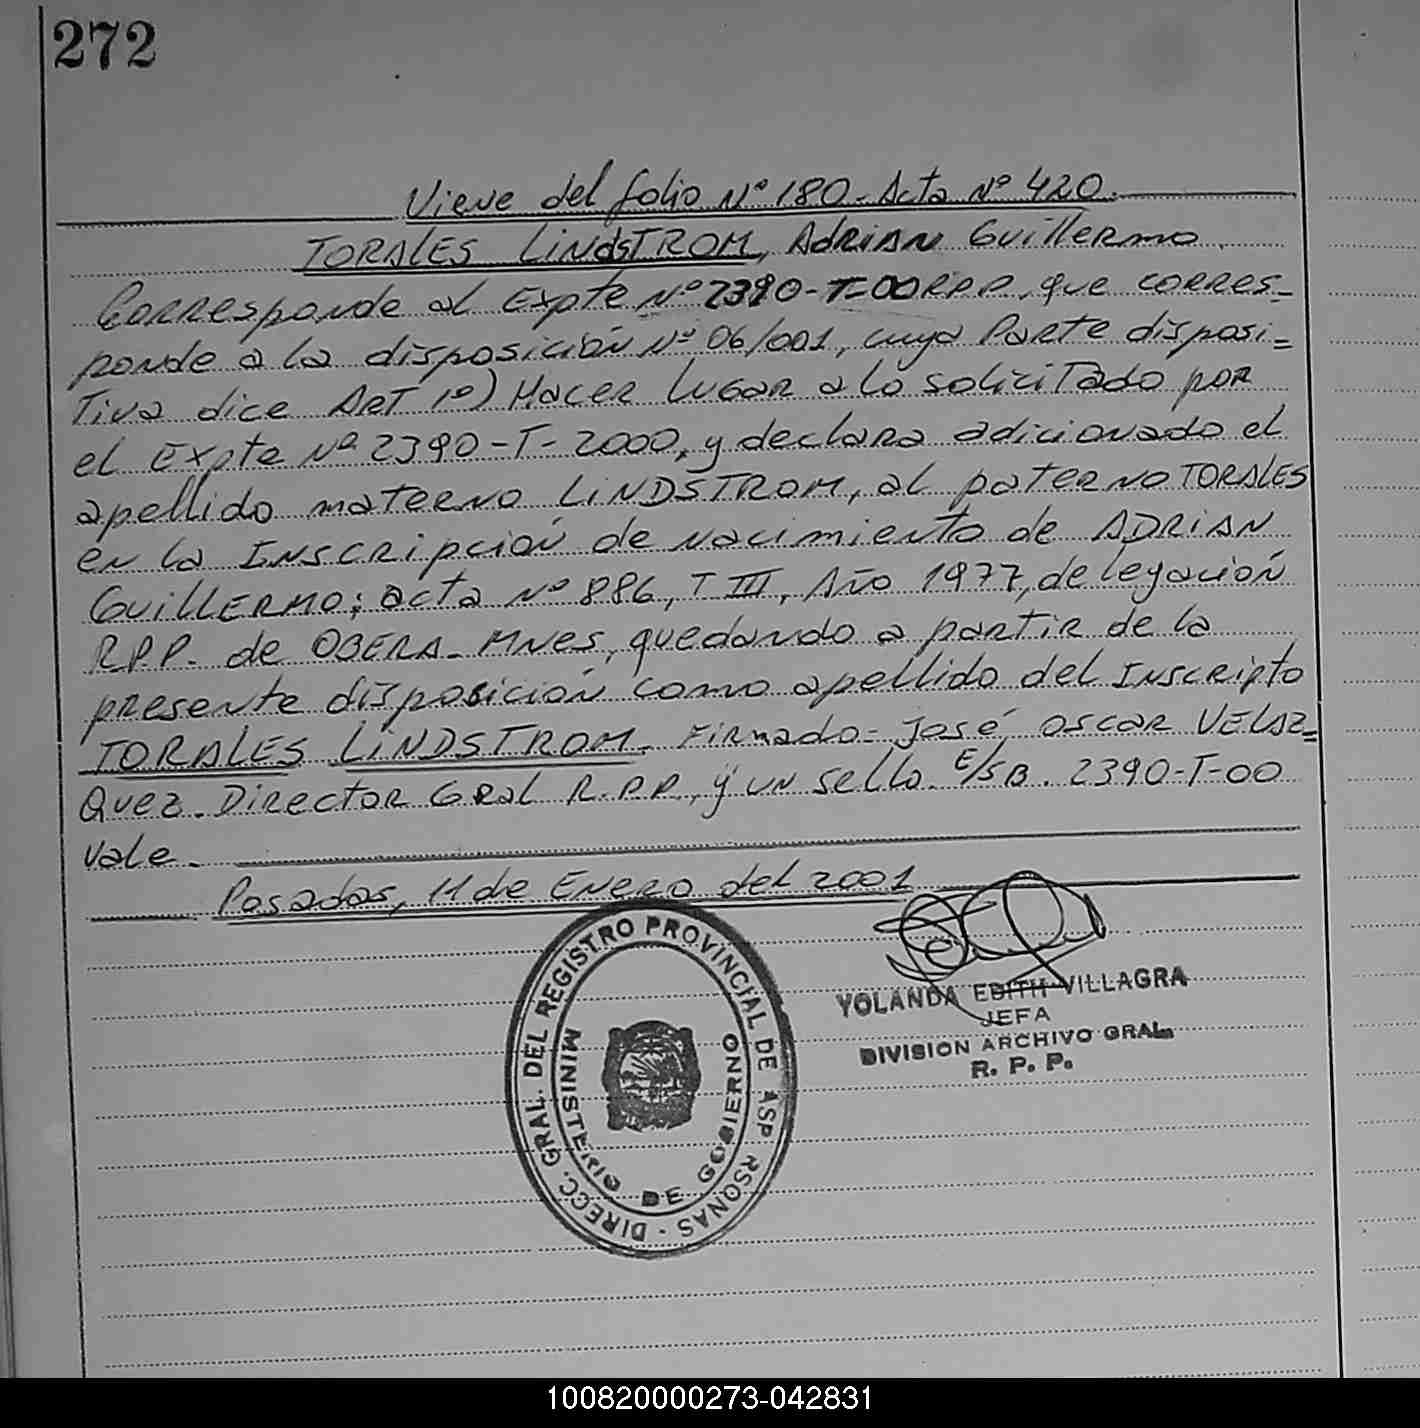 272
Viene del folio Nº 180 - Acta Nº 420.
TORALES LINDSTROM, Adrian Guillermo.
Corresponde al Expte Nº 2390-T-00 R.P.P, que corres-
ponde a la disposición Nº 06/001, cuya Parte disposi=
tiva dice ART 1º) Hacer lugar a lo solicitado por
el Expte Nº 2390-T-2000, y declara adicionado el
apellido materno LINDSTROM, al paterno TORALES
en la Inscripción de nacimiento de ADRIAN
GUILLERMO; acta Nº 886, T III, Año 1977, delegación
R.P.P. de OBERA - MNES, quedando a partir de la
presente disposición como apellido del Inscripto
TORALES LINDSTROM. Firmado - José Oscar VELAZ=
QUEZ. Director Gral R.P.P., y un sello. E/SB. 2390-T-00
Vale.
Posadas, 11 de Enero del 2001
DIRECC. GRAL. DEL REGISTRO PROVINCIAL DE ASP RSONAS -
MINISTERIO DE GOBIERNO
YOLANDA EDITH VILLAGRA
JEFA
DIVISION ARCHIVO GRAL.
R. P. P.
100820000273-042831